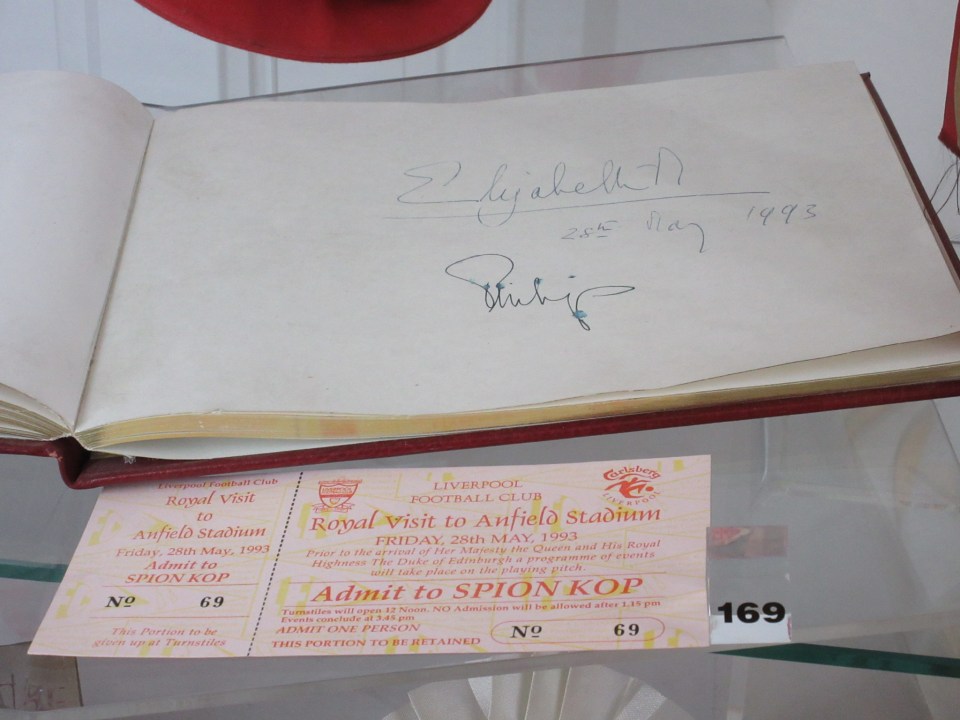 Elizabeth R
28th May 1993
Philip
Liverpool Football Club
Royal Visit
to
Anfield Stadium
Friday, 28th May, 1993
Admit to
SPION KOP
No 69
This Portion to be
given up at Turnstiles
LIVERPOOL
FOOTBALL CLUB
Carlsberg
LIVERPOOL
Royal Visit to Anfield Stadium
FRIDAY, 28th MAY, 1993
Prior to the arrival of Her Majesty the Queen and His Royal
Highness The Duke of Edinburgh a programme of events
will take place on the playing pitch.
Admit to SPION KOP
Turnstiles will open 12 Noon. NO Admission will be allowed after 1.15 pm
Events conclude at 3.45 pm
ADMIT ONE PERSON
THIS PORTION TO BE RETAINED
No 69
169